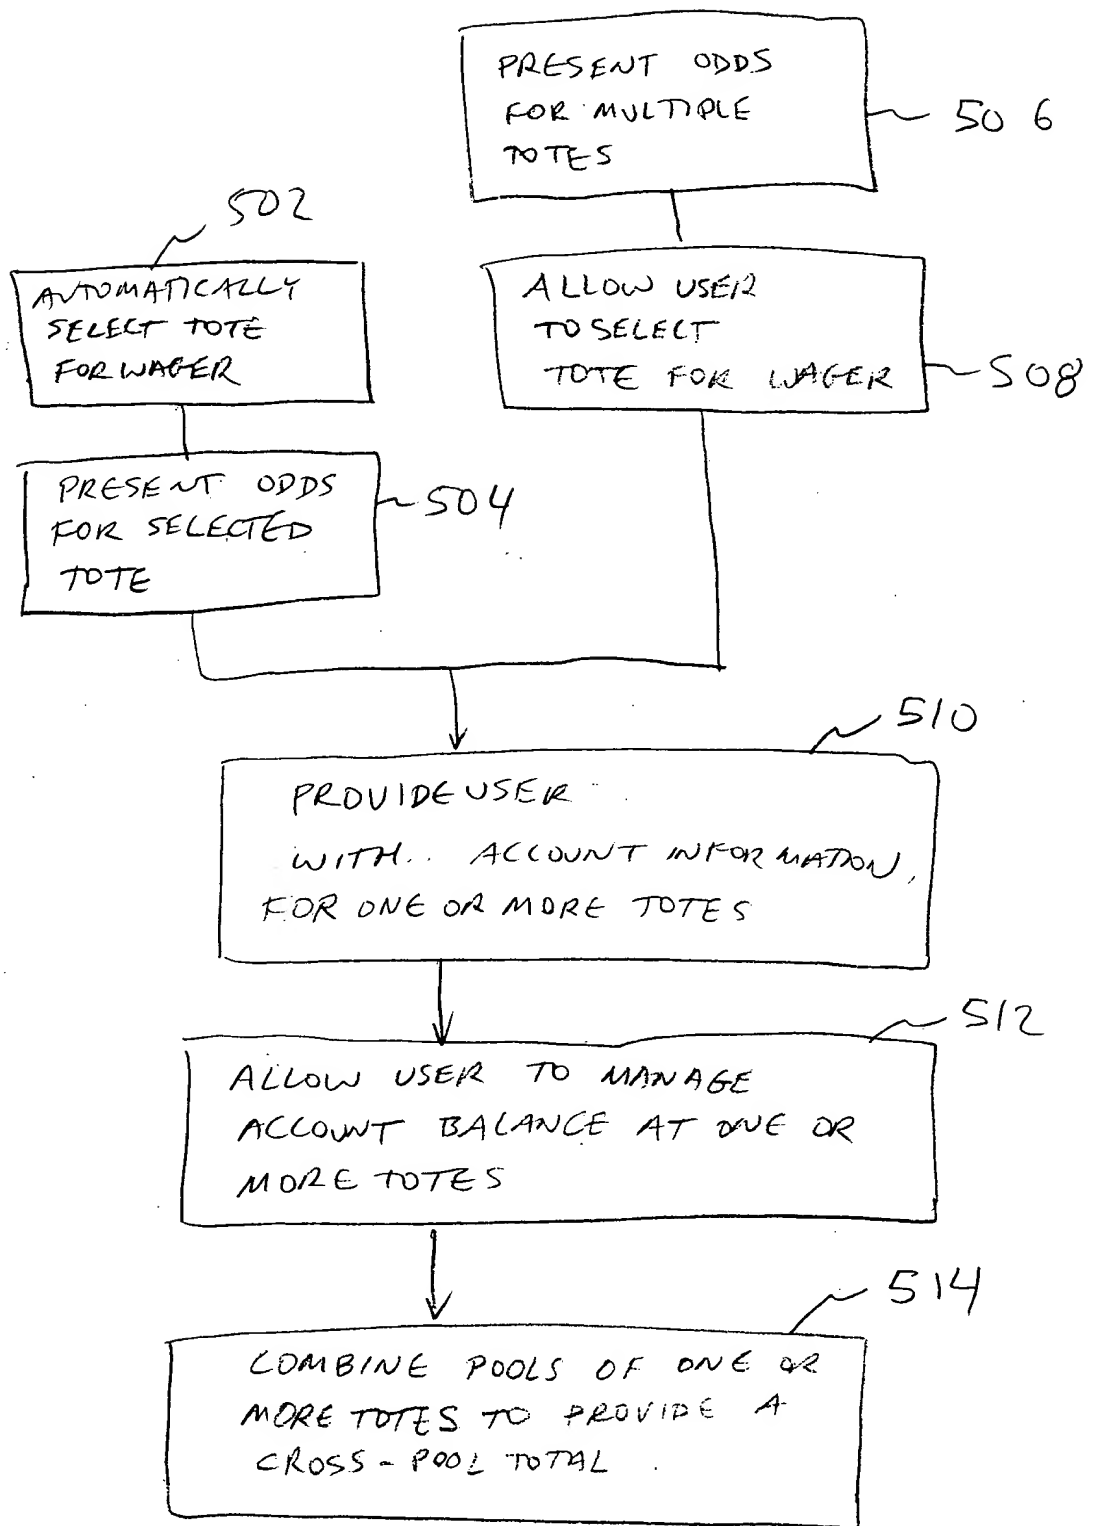 PRESENT ODDS
FOR MULTIPLE
TOTES
506
502
AUTOMATICALLY
SELECT TOTE
FOR WAGER
ALLOW USER
TO SELECT
TOTE FOR WAGER
508
PRESENT ODDS
FOR SELECTED
TOTE
504
510
PROVIDE USER
WITH.. ACCOUNT INFORMATION,
FOR ONE OR MORE TOTES
512
ALLOW USER TO MANAGE
ACCOUNT BALANCE AT ONE OR
MORE TOTES
514
COMBINE POOLS OF ONE OR
MORE TOTES TO PROVIDE A
CROSS-POOL TOTAL